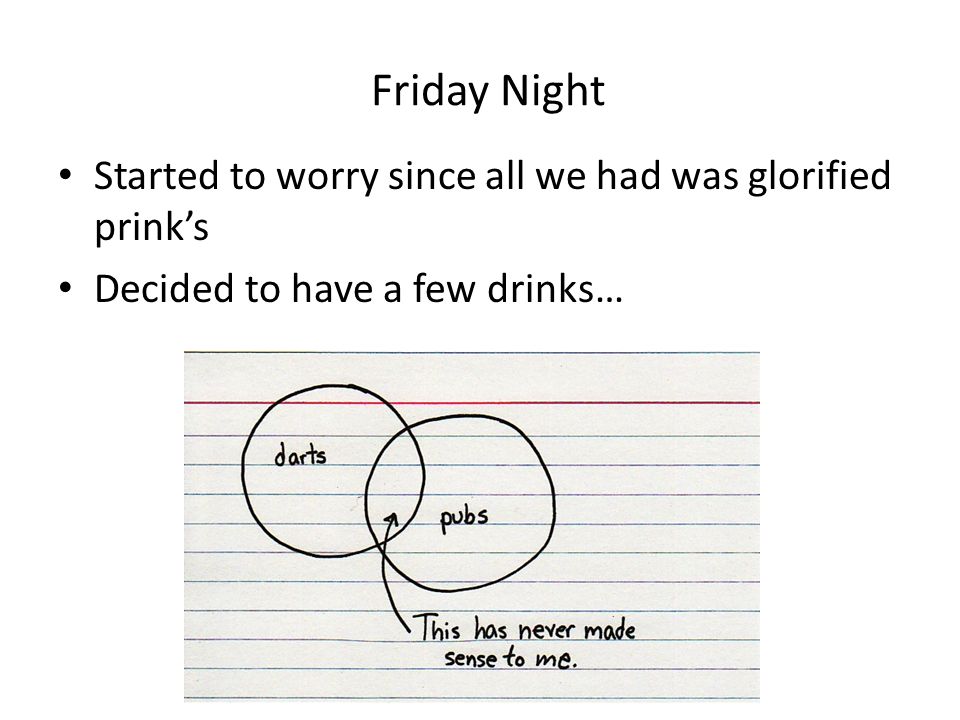 Friday Night
• Started to worry since all we had was glorified
prink’s
• Decided to have a few drinks…
darts
pubs
This has never made
sense to me.